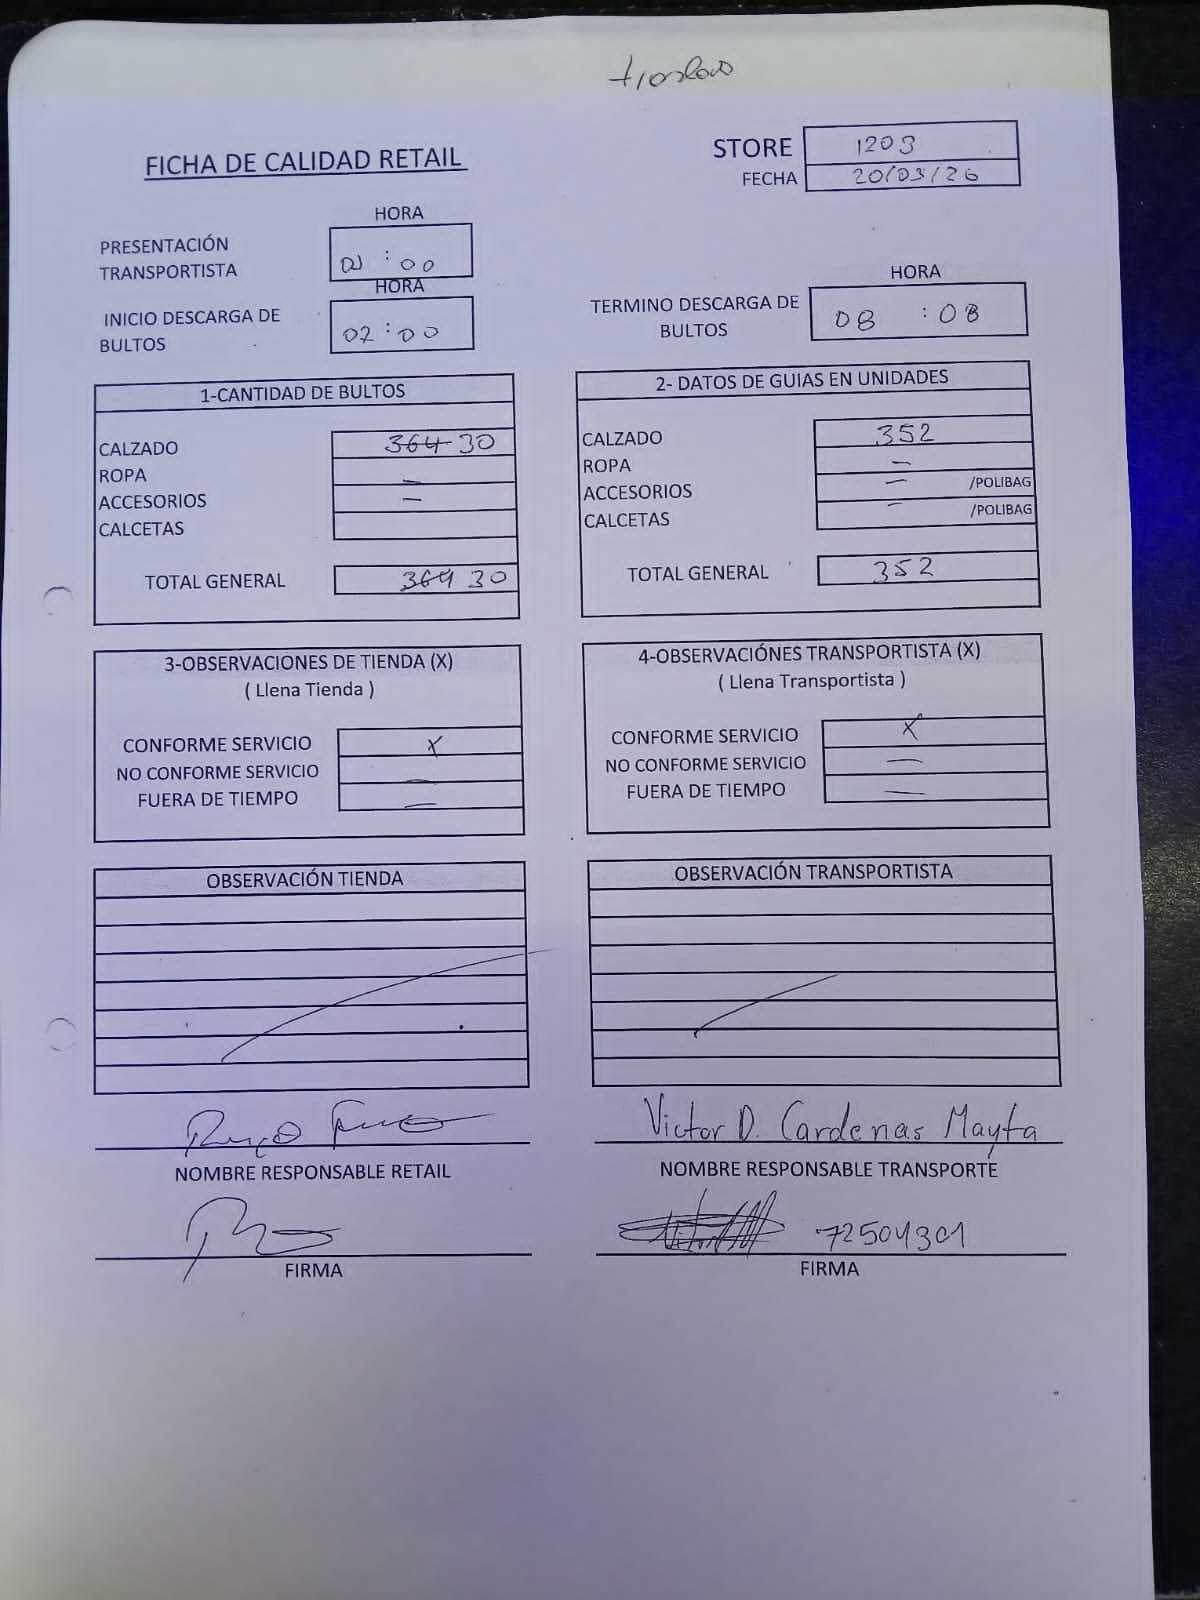 traslado
FICHA DE CALIDAD RETAIL
STORE 1203
FECHA 20/03/26
HORA
PRESENTACIÓN
TRANSPORTISTA
: 00
HORA
INICIO DESCARGA DE
BULTOS
02:00
HORA
TERMINO DESCARGA DE
BULTOS
08 : 08
1-CANTIDAD DE BULTOS
CALZADO 364 30
ROPA
ACCESORIOS –
CALCETAS –
TOTAL GENERAL 364 30
2- DATOS DE GUIAS EN UNIDADES
CALZADO 352
ROPA –
ACCESORIOS – /POLIBAG
CALCETAS – /POLIBAG
TOTAL GENERAL 352
3-OBSERVACIONES DE TIENDA (X)
( Llena Tienda )
CONFORME SERVICIO X
NO CONFORME SERVICIO –
FUERA DE TIEMPO –
4-OBSERVACIÓNES TRANSPORTISTA (X)
( Llena Transportista )
CONFORME SERVICIO X
NO CONFORME SERVICIO –
FUERA DE TIEMPO –
OBSERVACIÓN TIENDA
OBSERVACIÓN TRANSPORTISTA
NOMBRE RESPONSABLE RETAIL
FIRMA
Victor D. Cardenas Mayta
NOMBRE RESPONSABLE TRANSPORTE
72504301
FIRMA